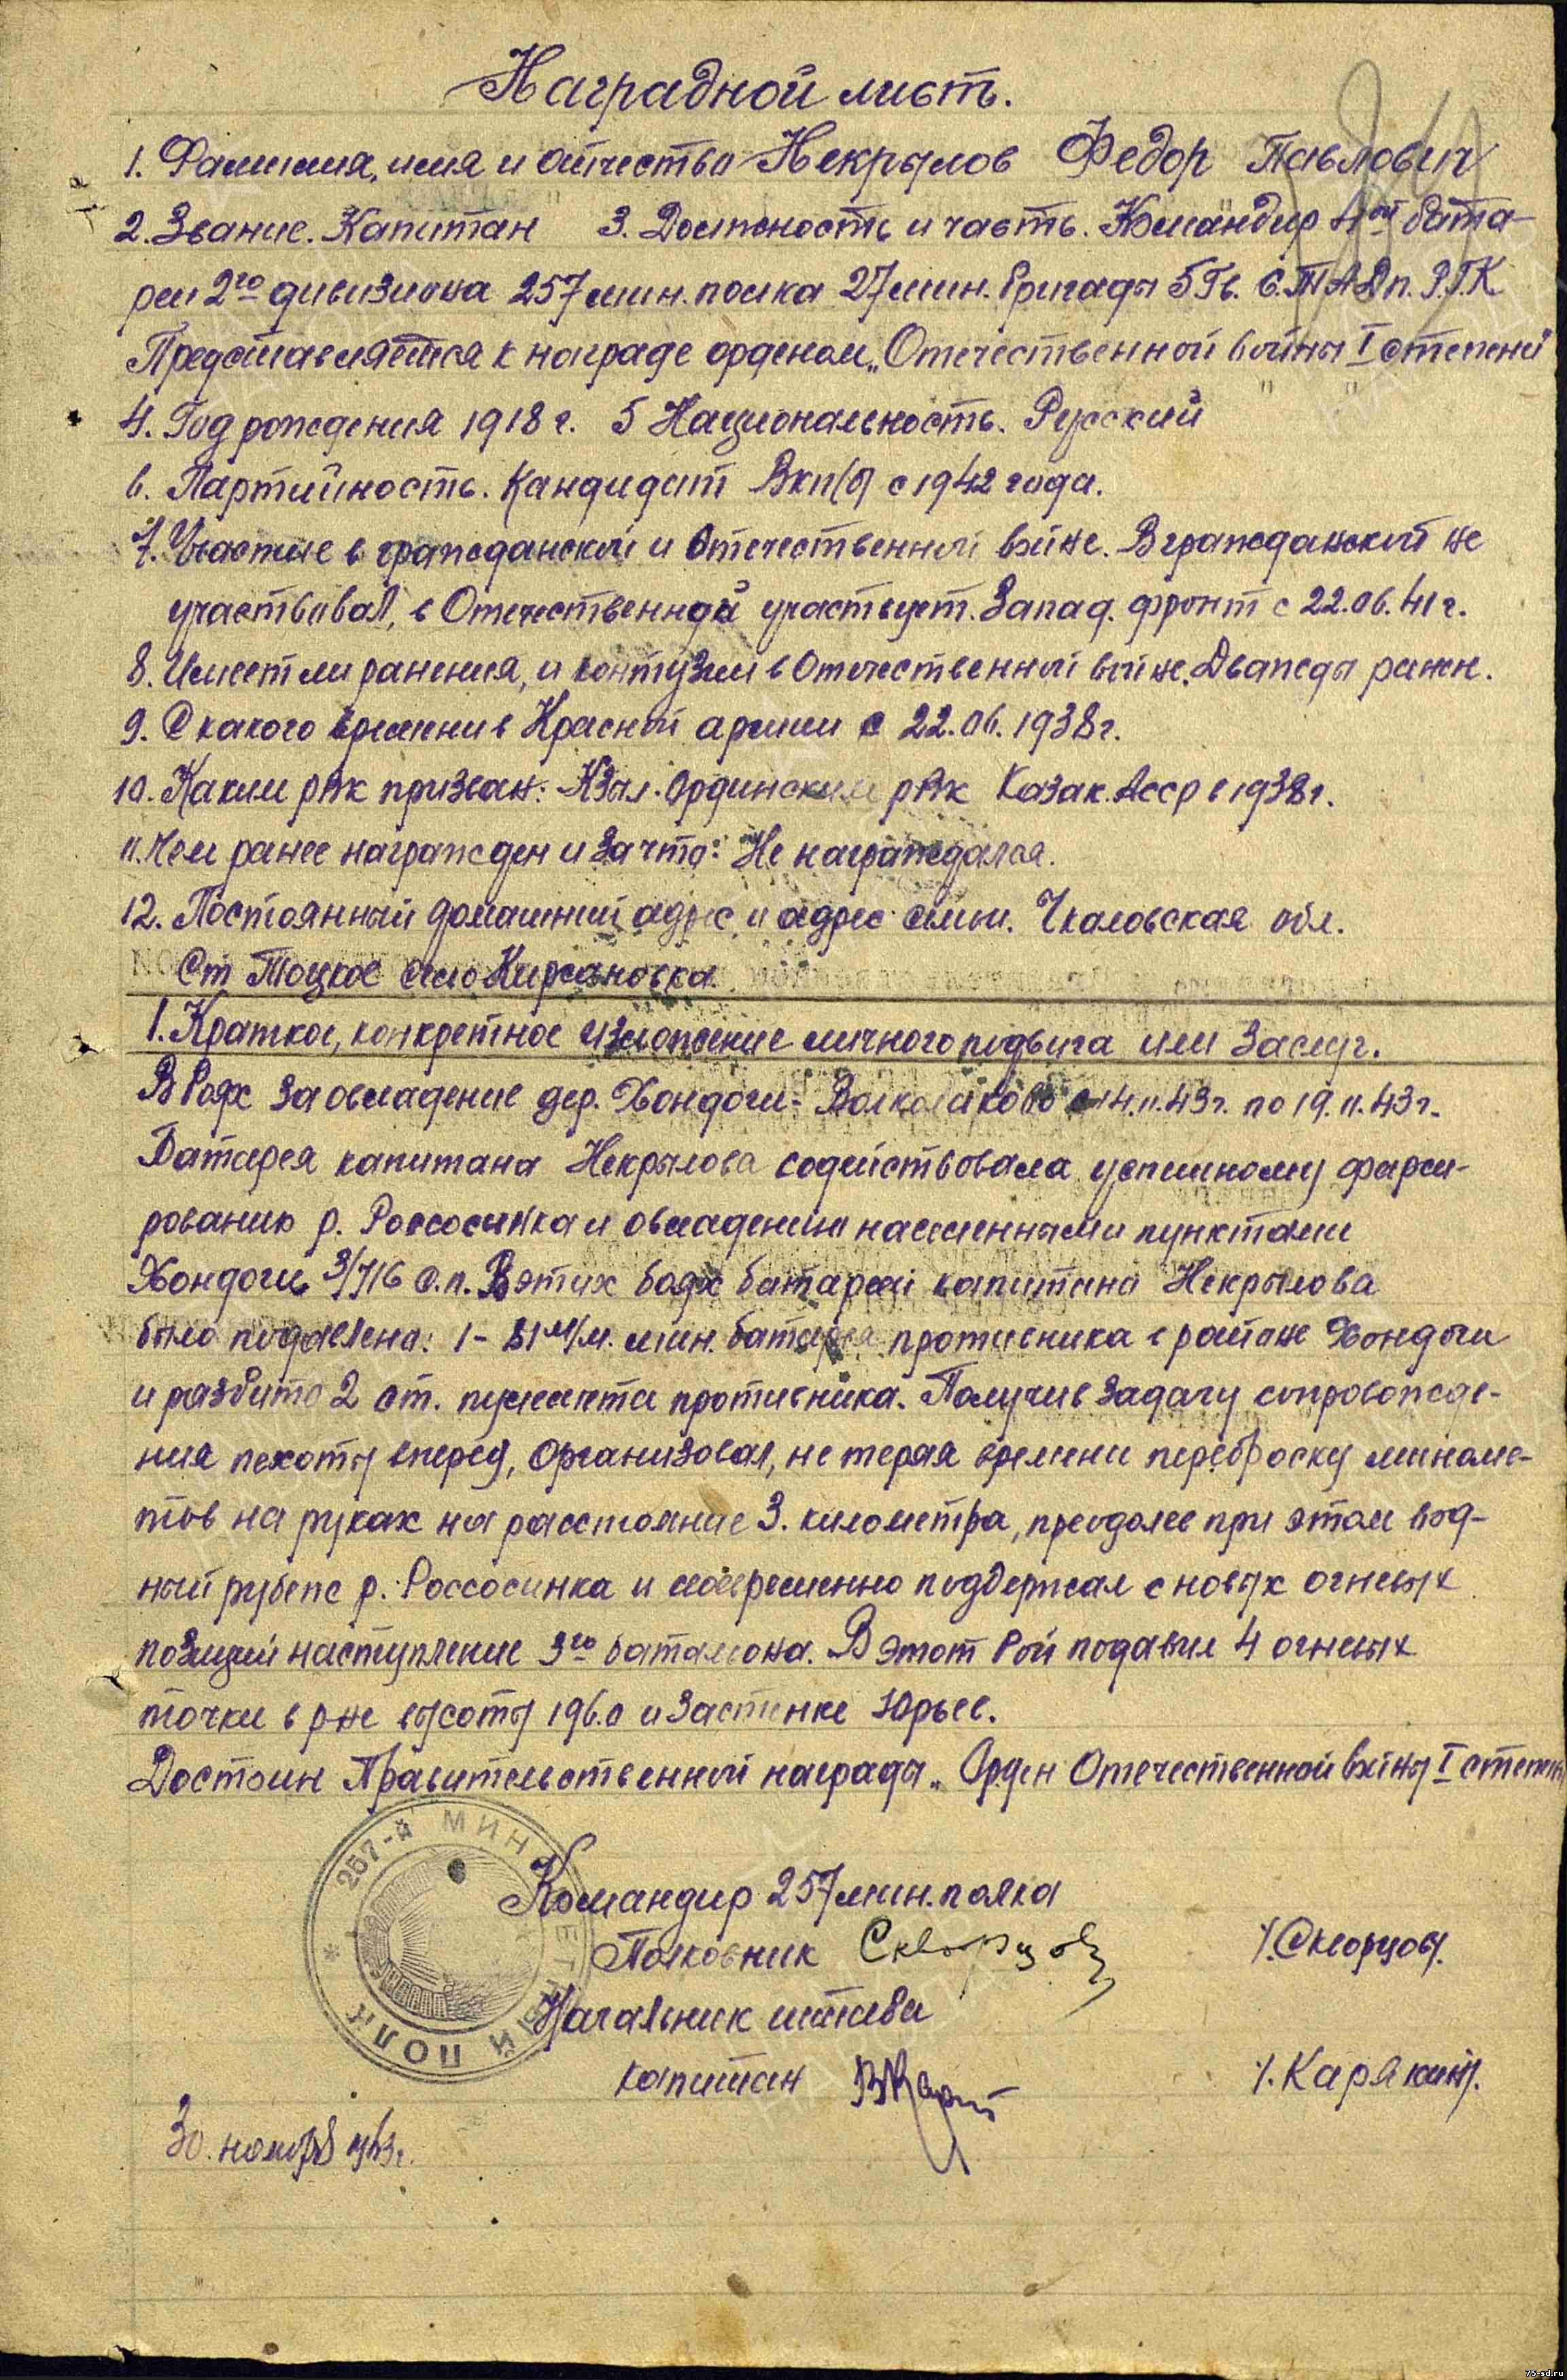 Наградной листъ.
1. Фамилия, имя и отчество Некрылов Федор Павлович
2. Звание. Капитан 3. Должность и часть. Командир 4ой бата-
реи 2го дивизиона 257 мин. полка 27 мин. бригады 5 Гв. С.Т.А.Д п. Р.Г.К
Представляется к награде орденом „Отечественной войны I степени"
4. Год рождения 1918 г. 5 Национальность. Русский
6. Партийность. Кандидат Вкп(б) с 1942 года.
7. Участие в гражданской и Отечественной войне. В гражданской не
участвовал, в Отечественной участвует. Запад. фронт с 22.06.41 г.
8. Имеет ли ранения, и контузии в Отечественной войне. Дважды ранен.
9. С какого времени в Красной армии с 22.06.1938 г.
10. Каким рвк призван: Кзыл. Ординским рвк Казак. Асср в 1938 г.
11. Чем ранее награжден и за что: Не награждался.
12. Постоянный домашний адрес и адрес семьи. Чкаловская обл.
Ст Тоцкое село Кирсановка.
1. Краткое, конкретное изложение личного подвига или заслуг.
В боях за овладение дер. Хондоги - Волколаково с 14.11.43 г. по 19.11.43 г.
Батарея капитана Некрылова содействовала успешному форси-
рованию р. Россосинка и овладению населенными пунктами
Хондоги 3/716 с.п. В этих боях батареей капитана Некрылова
было подавлено: 1 - 81 м/м. мин. батарея противника в районе Хондоги
и разбито 2 ст. пулемета противника. Получив задачу сопровожде-
ния пехоты вперед, организовал, не теряя времени переброску миноме-
тов на руках на расстояние 3. километра, преодолев при этом вод-
ный рубеж р. Россосинка и своевременно поддержал с новых огневых
позиций наступление 3го баталиона. В этот бой подавил 4 огневых
точки в р-не высоты 196.0 и застенке Юрьев.
Достоин Правительственной награды „Орден Отечественной войны I степени
257-й МИНОМЕТНЫЙ ПОЛК
Командир 257 мин. полка
Полковник Скворцов /.Скворцов/.
Начальник штаба
капитан /.Карякин/.
30. ноября 43 г.
75-sd.ru